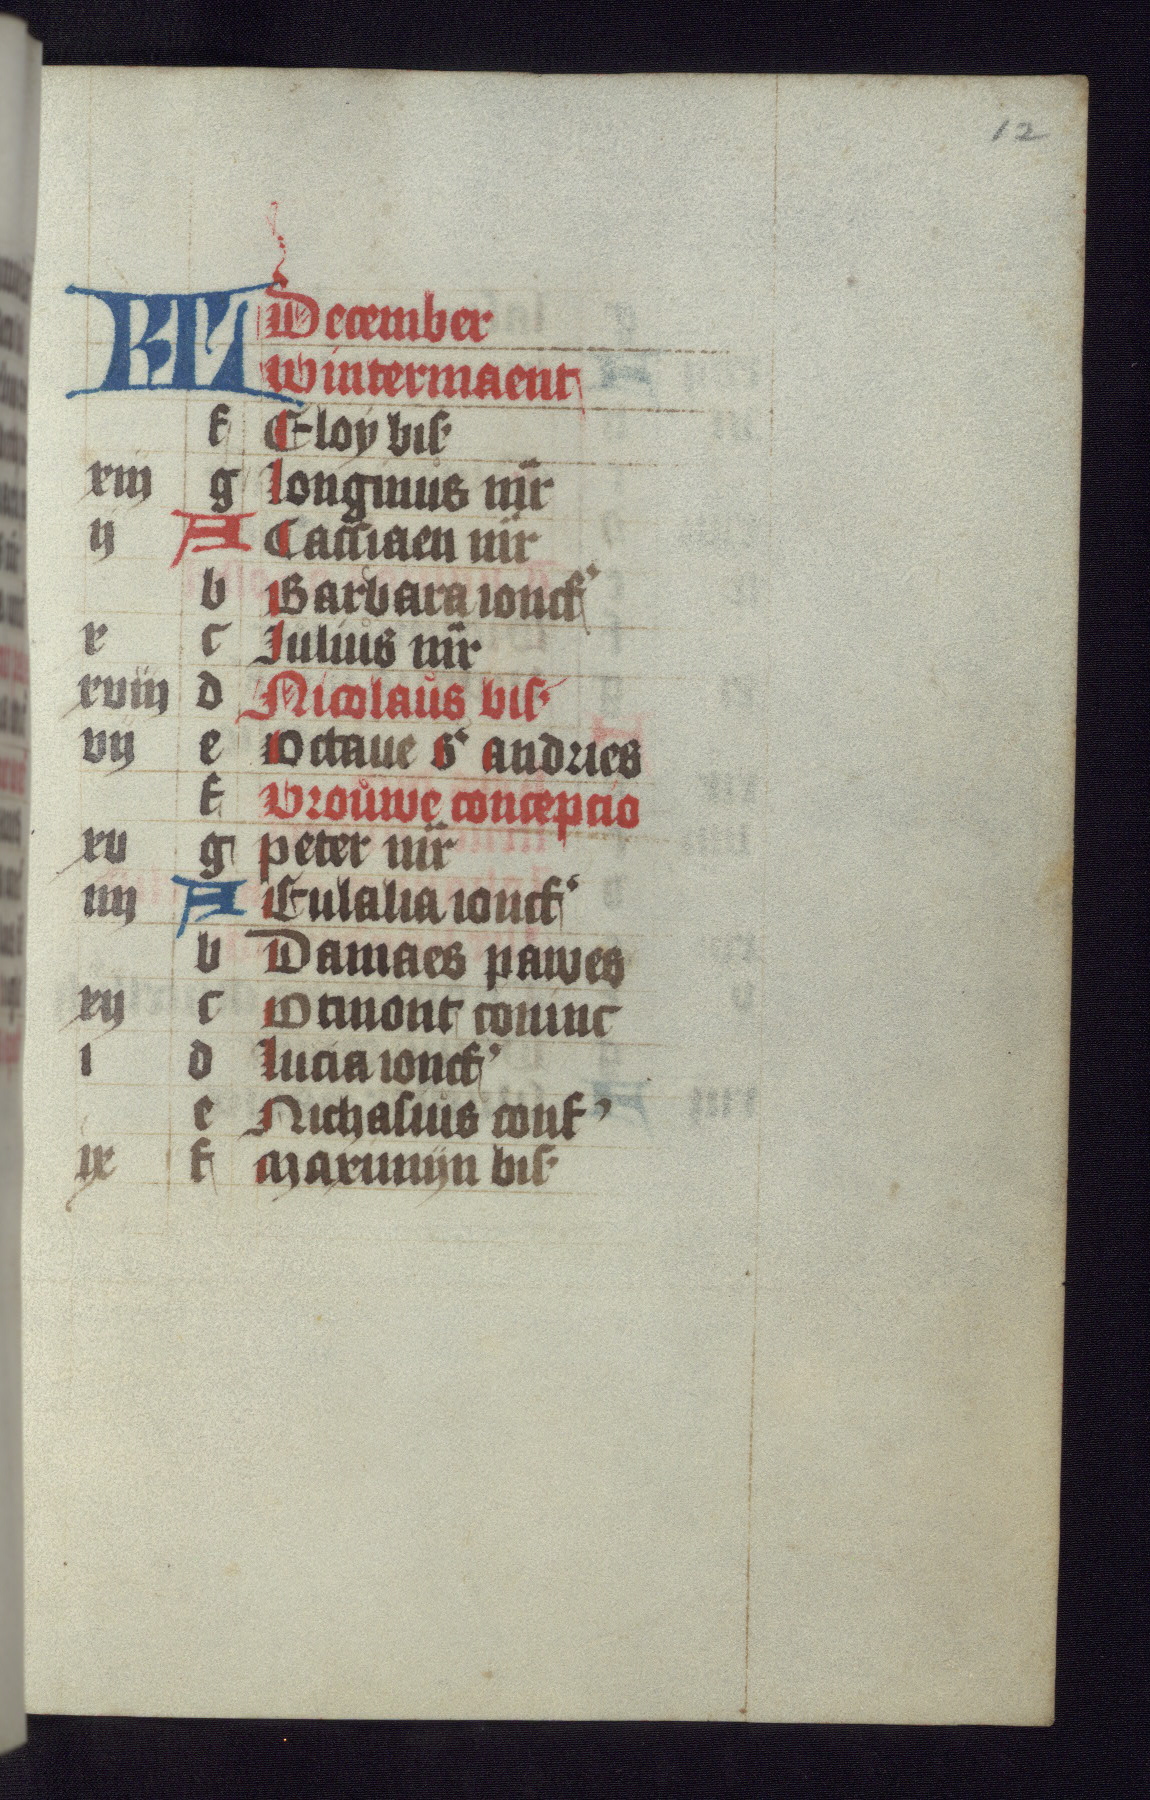 12
KL December
wintermaent
f Eloy bis
xiii g longinus mr
ii A Cassiaen mr
b Barbara ioncf
x c Iulius mr
xviii d Nicolaus bis
vii e Octave s andries
f Vrouwe concepcio
xv g peter mr
iiii A Eulalia ioncf
b Damaes pawes
xii c Otmont coninc
i d lucia ioncf
e Nichasius conf
ix f Maximijn bis